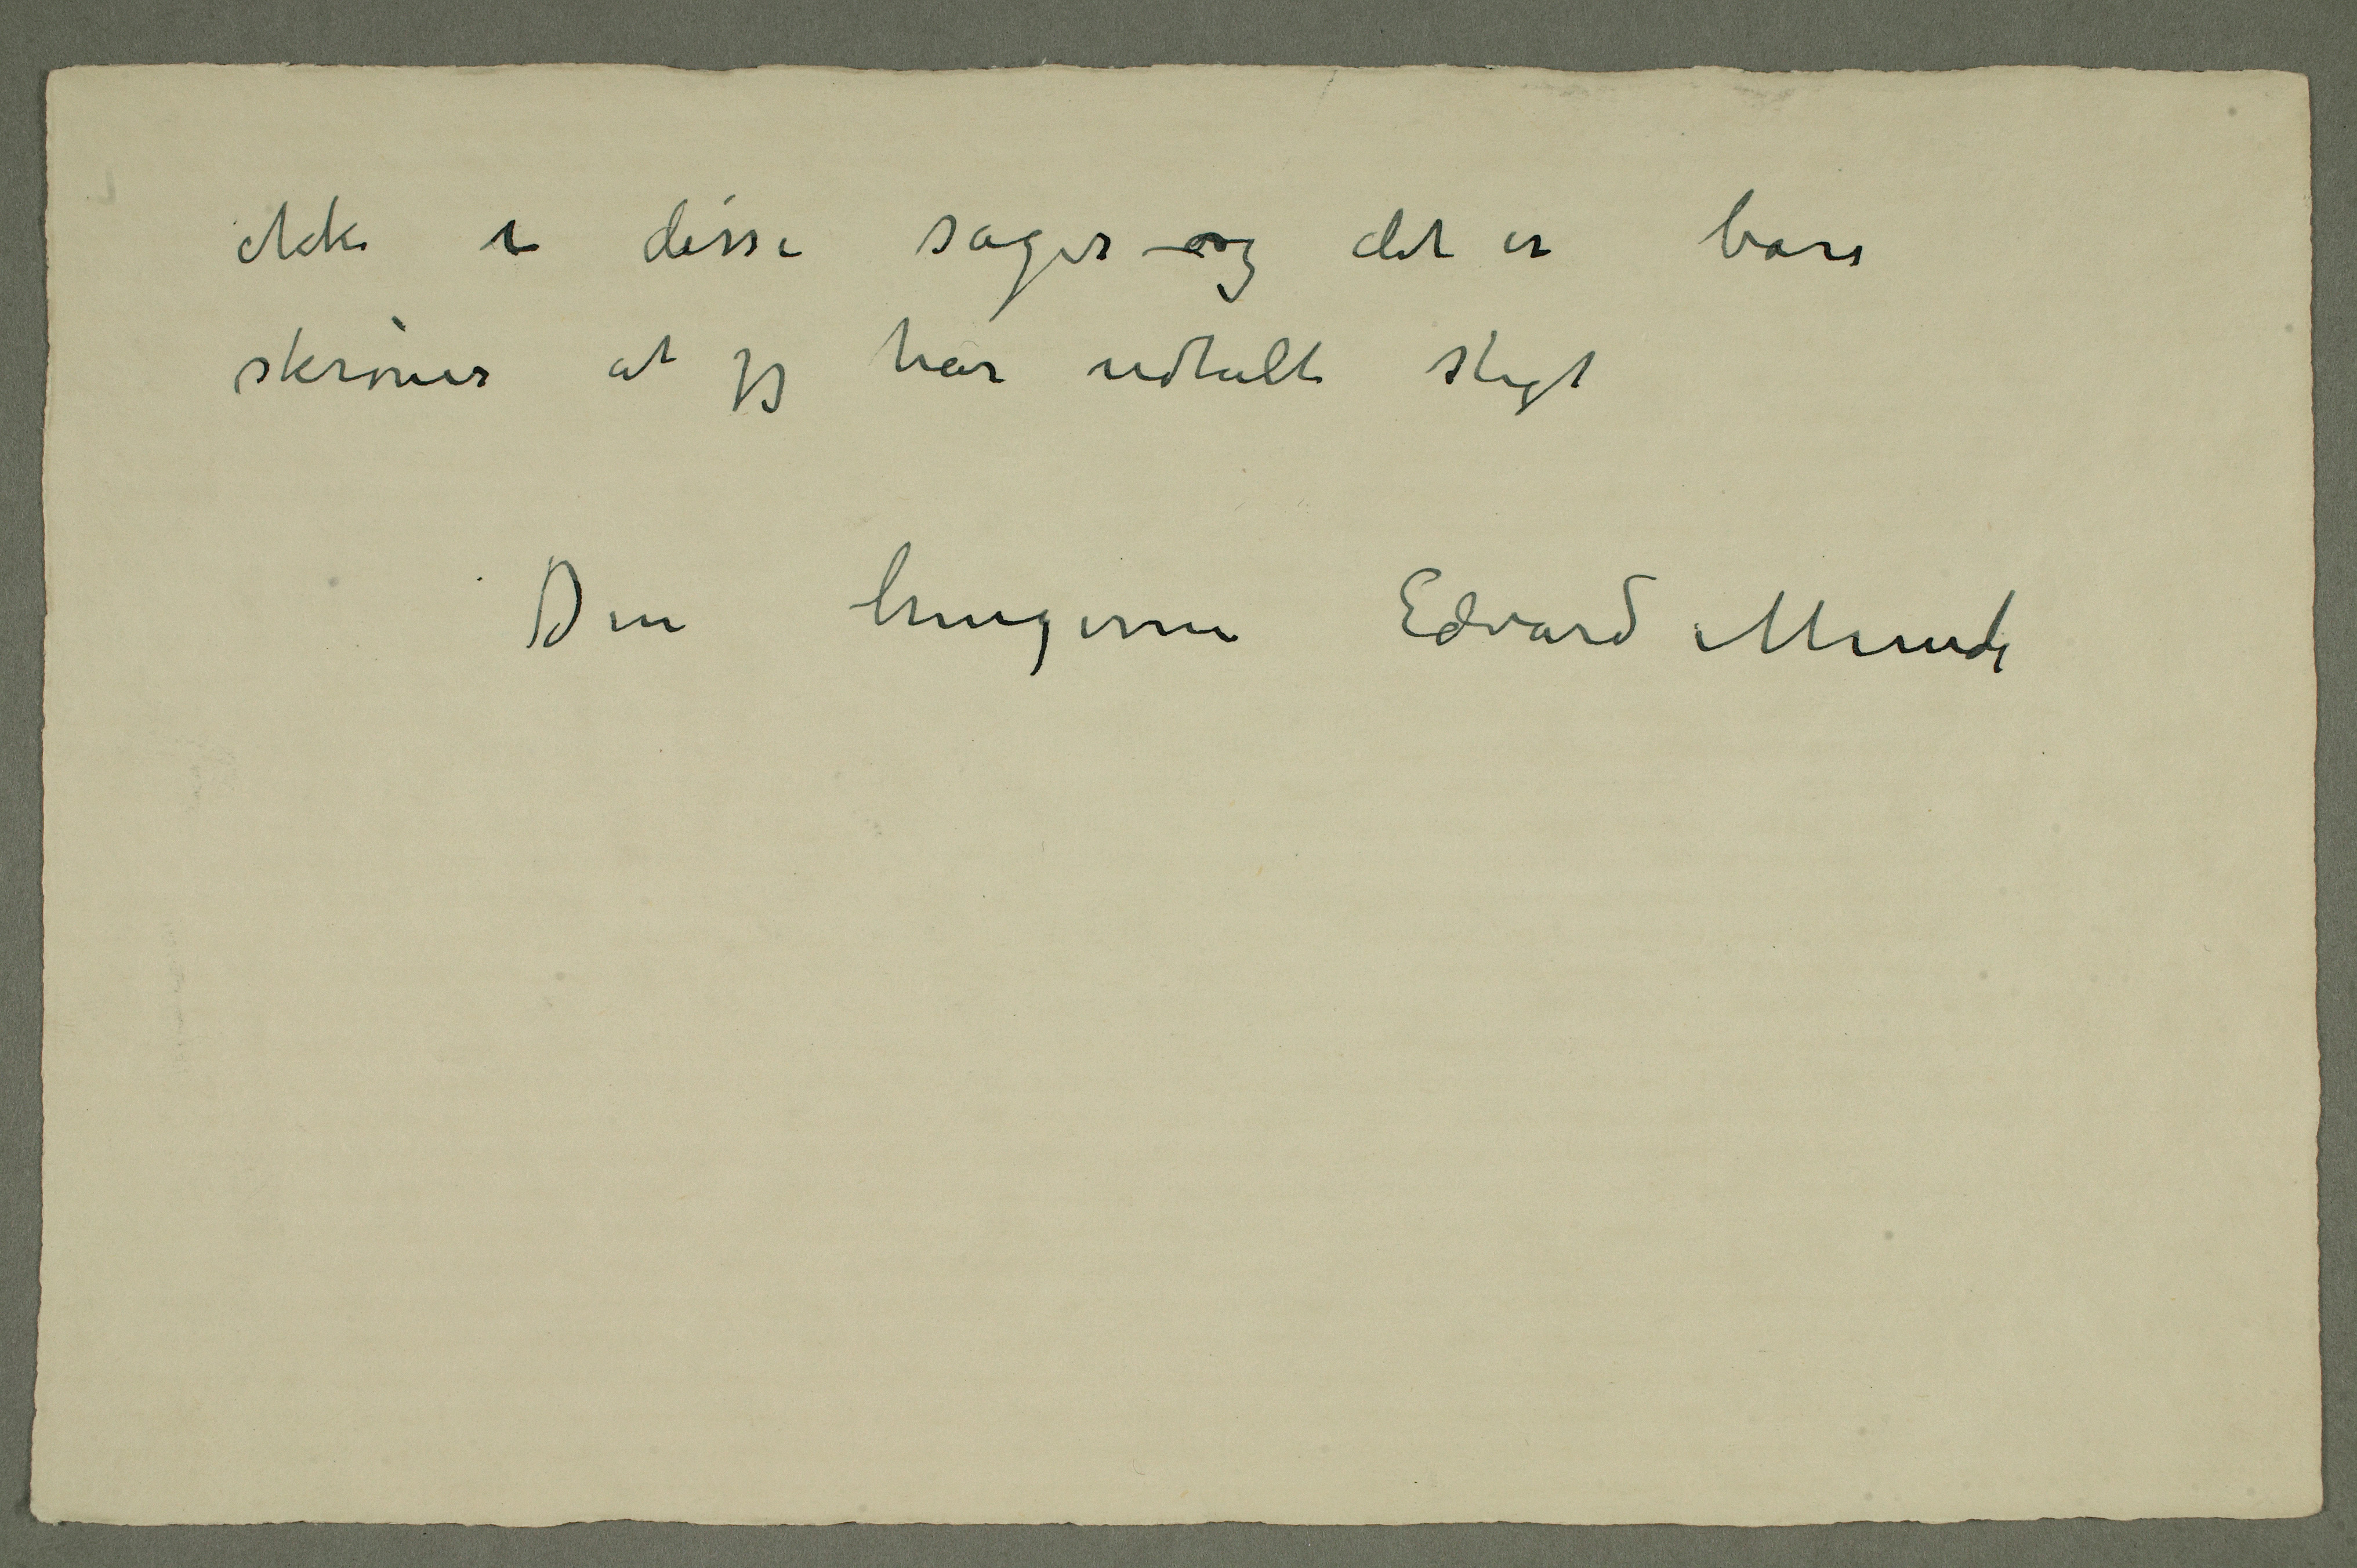 ikke i disse sager – og det er bare
skrøner at jeg har udtalt sligt
Din hengivne Edvard Munch